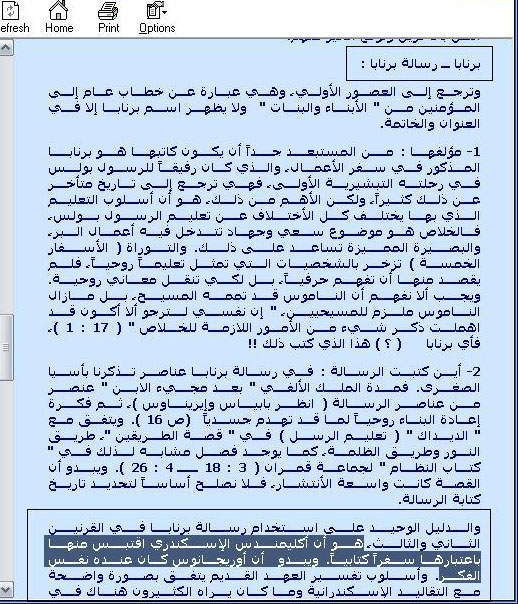 efresh Home Print Options
برنابا – رسالة برنابا :
وترجع إلى العصور الأولى، وهي عبارة عن خطاب عام إلى
المؤمنين من " الأبناء والبنات " ولا يظهر اسم برنابا إلا في
العنوان والخاتمة.
1- مؤلفها : من المستبعد جداً أن يكون كاتبها هو برنابا
المذكور في سفر الأعمال، والذي كان رفيقاً للرسول بولس
في رحلته التبشيرية الأولى، فهي ترجع إلى تاريخ متأخر
عن ذلك كثيراً، ولكن الأهم من ذلك، هو أن أسلوب التعليم
الذي بها يختلف كل الأختلاف عن تعليم الرسول بولس،
فالخلاص هو موضوع سعي وجهاد تتدخل فيه أعمال البر،
والبصيرة المميزة تساعد على ذلك. والتوراة ( الأسفار
الخمسة ) تزخر بالشخصيات التي تمثل تعليماً روحياً، فلم
يقصد منها أن تفهم حرفياً، بل لكي تنقل معاني روحية.
ويجب ألا نفهم أن الناموس قد تممه المسيح، بل مازال
الناموس ملزم للمسيحيين، " إن نفسي لترجو ألا أكون قد
اهملت ذكر شيء من الأمور اللازمة للخلاص " ( 17 : 1 )،
فأي برنابا ( ؟ ) هذا الذي كتب ذلك !!
2- أين كتبت الرسالة : في رسالة برنابا عناصر تذكرنا بأسيا
الصغرى. فمدة الملك الألفي " بعد مجيء الابن " عنصر
من عناصر الرسالة ( انظر بابياس وإيريناوس )، ثم فكرة
إعادة البناء روحياً لما قد تهدم جسدياً (ص 16 ). ويتفق مع
" الديداك " ( تعليم الرسل ) في " قصة الطريقين "، طريق
النور وطريق الظلمة، كما يوجد فصل مشابه لذلك في "
كتاب النظام " لجماعة قمران ( 3 : 18 – 4 : 26 ). ويبدو أن
القصة كانت واسعة الأنتشار، فلا تصلح أساساً لتحديد تاريخ
كتابة الرسالة.
والدليل الوحيد على استخدام رسالة برنابا في القرنين
الثاني والثالث، هو أن أكليمندس الإسكندري اقتبس منها
باعتبارها سفراً كتابياً. ويبدو أن أوريجانوس كان عنده نفس
الفكر. وأسلوب تفسير العهد القديم يتفق بصورة واضحة
مع التقاليد الإسكندرانية وما كان يراه الكثيرون هناك في